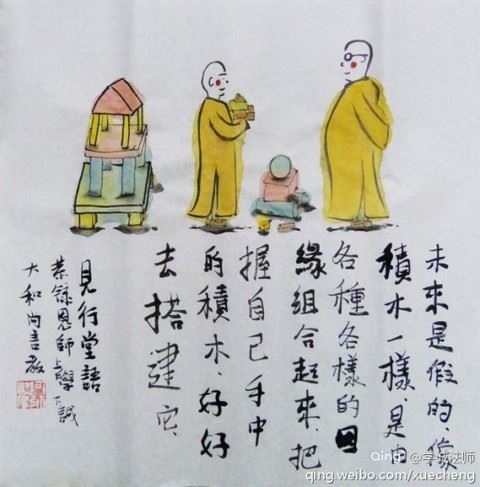 未來是假的、像
積木一樣、是由
各種各樣的因
緣組合起來、把
握自己手中
的積木、好好
去搭建它、
見行堂語
恭録恩師上學下誠
大和尚言教
Qing @学诚法师
qing.weibo.com/xuecheng